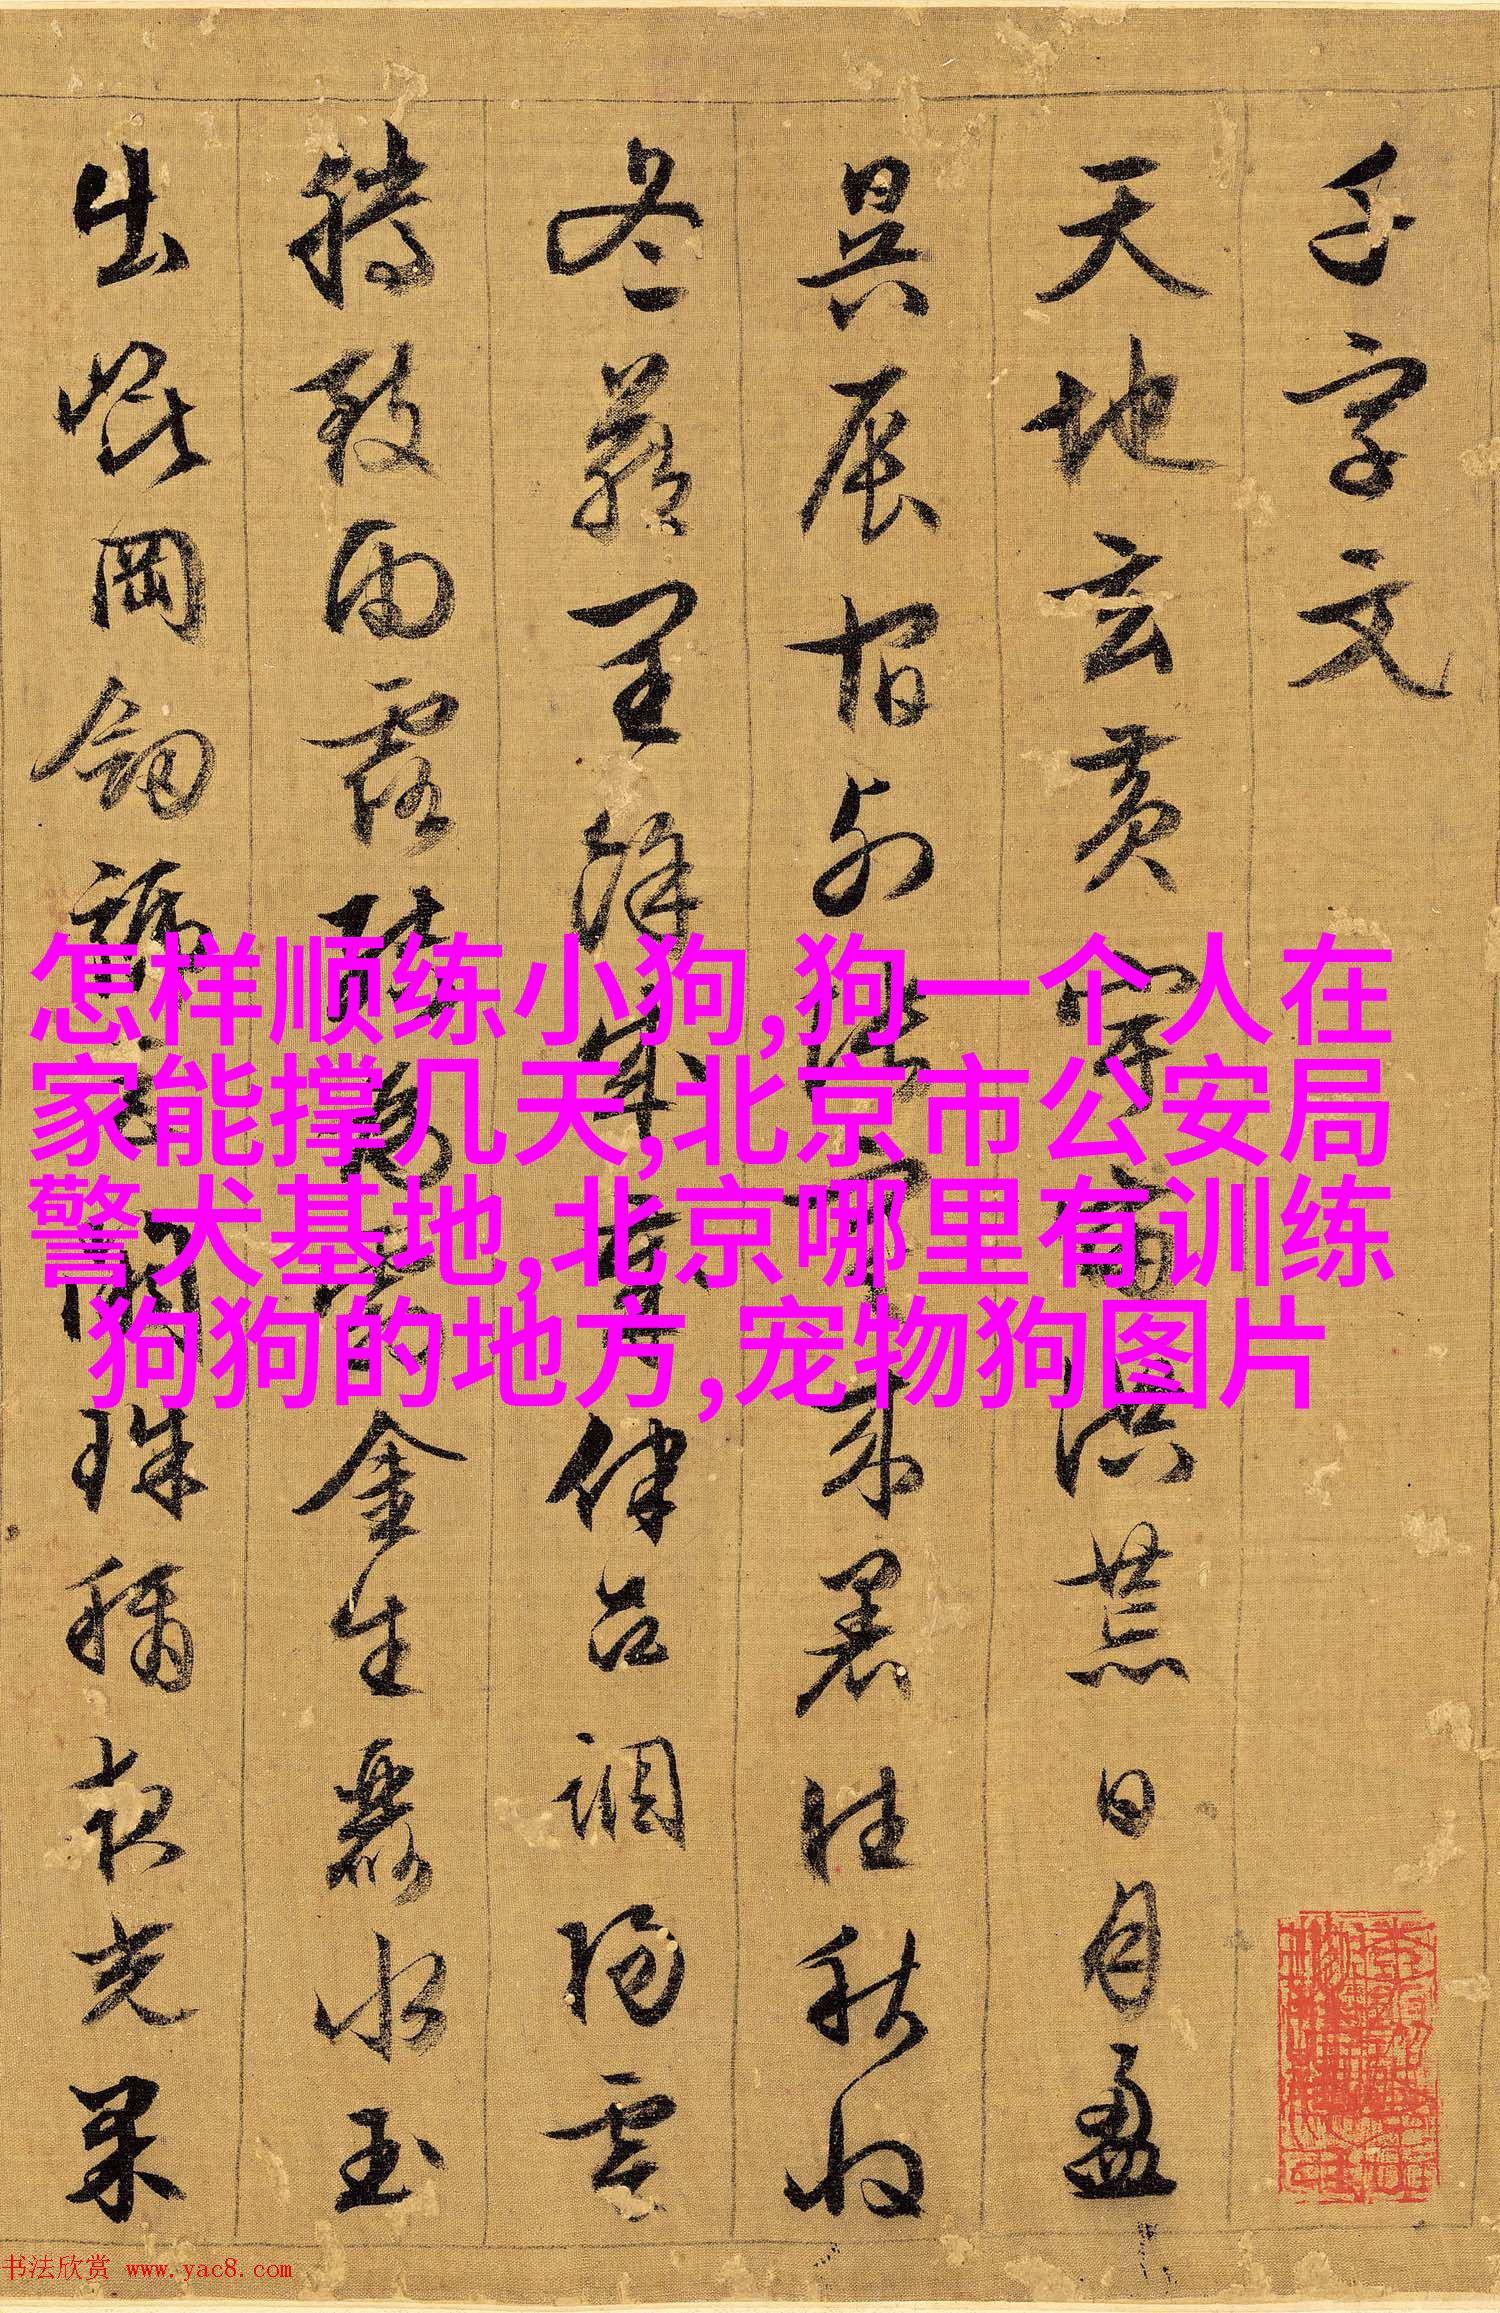 千字文
天地玄黄宇宙洪荒日月盈
昃辰宿列張寒来暑往秋收
冬藏閏餘成歲律吕調陽雲
騰致雨露結為霜金生麗水玉
出崑岡劍號巨闕珠稱夜光果
怎样顺练小狗,狗一个人在
家能撑几天,北京市公安局
警犬基地,北京哪里有训练
狗狗的地方,宠物狗图片
书法欣赏 www.yac8.com